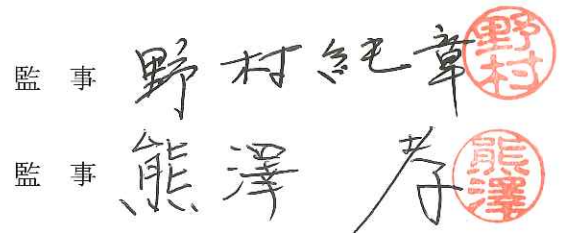 監 事 野村純章 野村
監 事 熊澤 孝 熊澤